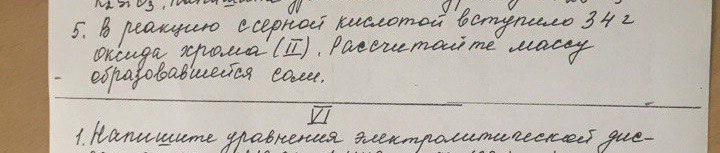 5. В реакцию с серной кислотой вступило 34 г
оксида хрома (II). Рассчитайте массу
образовавшейся соли.
VI
1. Напишите уравнения электролитической дис-